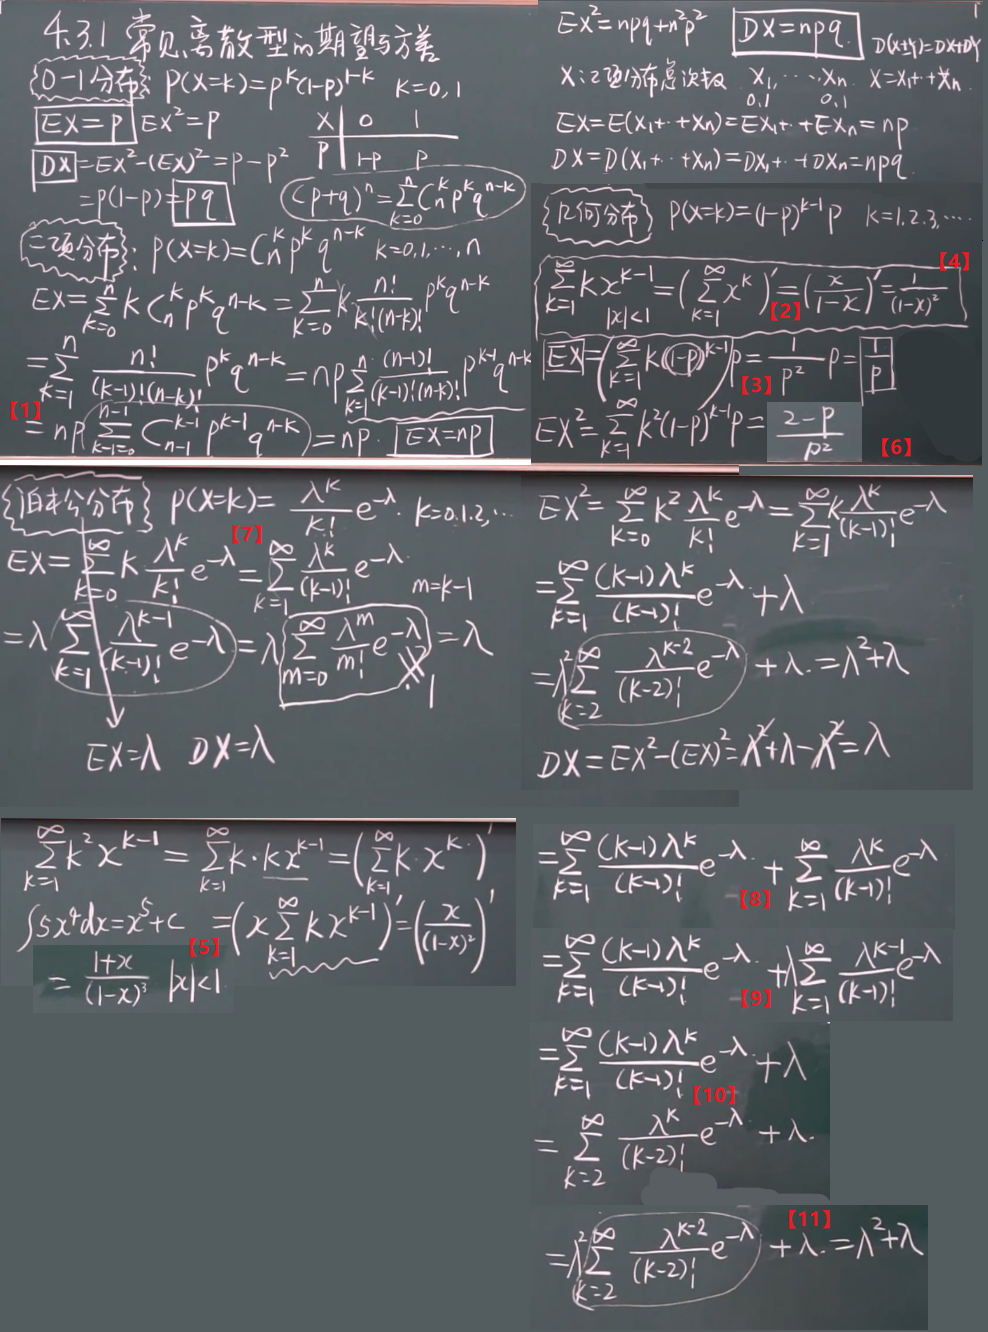 4.3.1 常见离散型的期望与方差
0-1分布: P(X=k)=p^k(1-p)^{1-k} k=0,1
EX=p EX²=p
X 0 1
P 1-p p
DX=EX²-(EX)²=p-p²
=p(1-p)=pq
(p+q)^n=∑_{k=0}^{n} C_n^k p^k q^{n-k}
二项分布: P(X=k)=C_n^k p^k q^{n-k} k=0,1,…,n
EX=∑_{k=0}^{n} k C_n^k p^k q^{n-k}=∑_{k=0}^{n} k \frac{n!}{k!(n-k)!} p^k q^{n-k}
=∑_{k=1}^{n} \frac{n!}{(k-1)!(n-k)!} p^k q^{n-k}=np∑_{k=1}^{n} \frac{(n-1)!}{(k-1)!(n-k)!} p^{k-1} q^{n-k}
【1】
=np∑_{k-1=0}^{n-1} C_{n-1}^{k-1} p^{k-1} q^{n-k}=np. EX=np
EX²=npq+n²p² DX=npq. D(X±Y)=DX+DY
X:二项分布总次数 X₁,……Xn X=X₁+…+Xn
0,1 0,1
EX=E(X₁+…+Xn)=EX₁+…+EXn=np
DX=D(X₁+…+Xn)=DX₁+…+DXn=npq.
几何分布 P(X=k)=(1-p)^{k-1}p k=1,2,3,….
【4】
∑_{k=1}^{∞} k x^{k-1}=(∑_{k=1}^{∞} x^k)'=(\frac{x}{1-x})'=\frac{1}{(1-x)²}
|x|<1 【2】
EX=(∑_{k=1}^{∞} k(1-p)^{k-1})p=\frac{1}{p²}p=\frac{1}{p}
【3】
EX²=∑_{k=1}^{∞} k²(1-p)^{k-1}p=\frac{2-p}{p²}
【6】
泊松分布 P(X=k)=\frac{λ^k}{k!}e^{-λ}. k=0,1,2,…
【7】
EX=∑_{k=0}^{∞} k\frac{λ^k}{k!}e^{-λ}=∑_{k=1}^{∞} \frac{λ^k}{(k-1)!}e^{-λ} m=k-1
=λ∑_{k=1}^{∞} \frac{λ^{k-1}}{(k-1)!}e^{-λ}=λ∑_{m=0}^{∞} \frac{λ^m}{m!}e^{-λ}=λ
1
EX=λ DX=λ
EX²=∑_{k=0}^{∞} k²\frac{λ^k}{k!}e^{-λ}=∑_{k=1}^{∞} k\frac{λ^k}{(k-1)!}e^{-λ}
=∑_{k=1}^{∞} \frac{(k-1)λ^k}{(k-1)!}e^{-λ}+λ
=λ²∑_{k=2}^{∞} \frac{λ^{k-2}}{(k-2)!}e^{-λ}+λ.=λ²+λ
DX=EX²-(EX)²=λ²+λ-λ²=λ
∑_{k=1}^{∞} k²x^{k-1}=∑_{k=1}^{∞} k·kx^{k-1}=(∑_{k=1}^{∞} k·x^k)'
∫5x⁴dx=x⁵+C =(x∑_{k=1}^{∞} kx^{k-1})'=(\frac{x}{(1-x)²})'
【5】
=\frac{1+x}{(1-x)³} |x|<1
=∑_{k=1}^{∞} \frac{(k-1)λ^k}{(k-1)!}e^{-λ}+∑_{k=1}^{∞} \frac{λ^k}{(k-1)!}e^{-λ}
【8】
=∑_{k=1}^{∞} \frac{(k-1)λ^k}{(k-1)!}e^{-λ}+λ∑_{k=1}^{∞} \frac{λ^{k-1}}{(k-1)!}e^{-λ}
【9】
=∑_{k=1}^{∞} \frac{(k-1)λ^k}{(k-1)!}e^{-λ}+λ
【10】
=∑_{k=2}^{∞} \frac{λ^k}{(k-2)!}e^{-λ}+λ.
【11】
=λ²∑_{k=2}^{∞} \frac{λ^{k-2}}{(k-2)!}e^{-λ}+λ.=λ²+λ